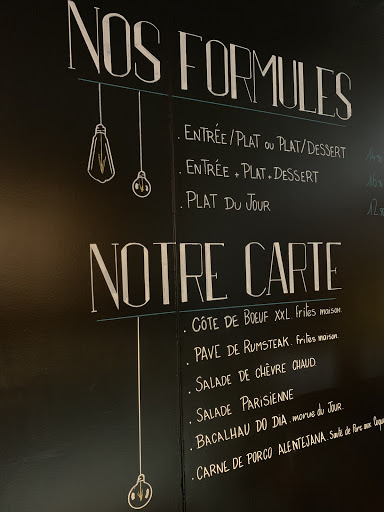 NOS FORMULES
. ENTRÉE/PLAT OU PLAT/DESSERT
. ENTRÉE + PLAT + DESSERT
. PLAT DU JOUR
NOTRE CARTE
. CÔTE DE BOEUF XXL. frites maison.
. PAVE DE RUMSTEAK. frites maison.
. SALADE DE CHÈVRE CHAUD.
. SALADE PARISIENNE
. BACALHAU DO DIA. morue du Jour.
. CARNE DE PORCO ALENTEJANA. Sauté de Porc aux